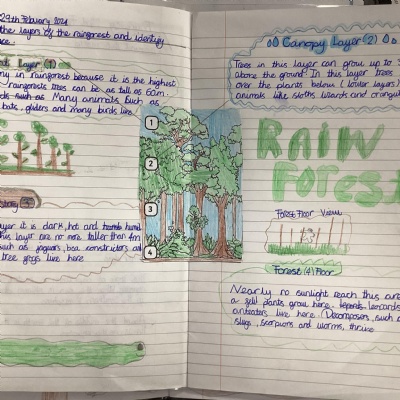 29th Febuary 2024
the layers of the rainforest and identify
ce.
Layer (1)
ny in rainforest because it is the highest
rainforests trees can be as tall as 60m.
rds such as Many animals such as
bats, gliders and many birds live
1
2
3
4
story 3
layer it is dark, hot and humid
this layer are no more taller than 4m
such as jaguars, boa constrictors and
tree frogs live here
Canopy Layer (2)
Trees in this layer can grow up to
above the ground. In this layer trees
over the plants below (lower layers)
animals like sloths, lizards and orangu
RAIN
Forest
Forest Floor View
Forest (4) Floor
Nearly no sunlight reach this are
a few plants grow here. leopards
anteaters live here. Decomposers, such a
slugs, scorpions and worms, thrive